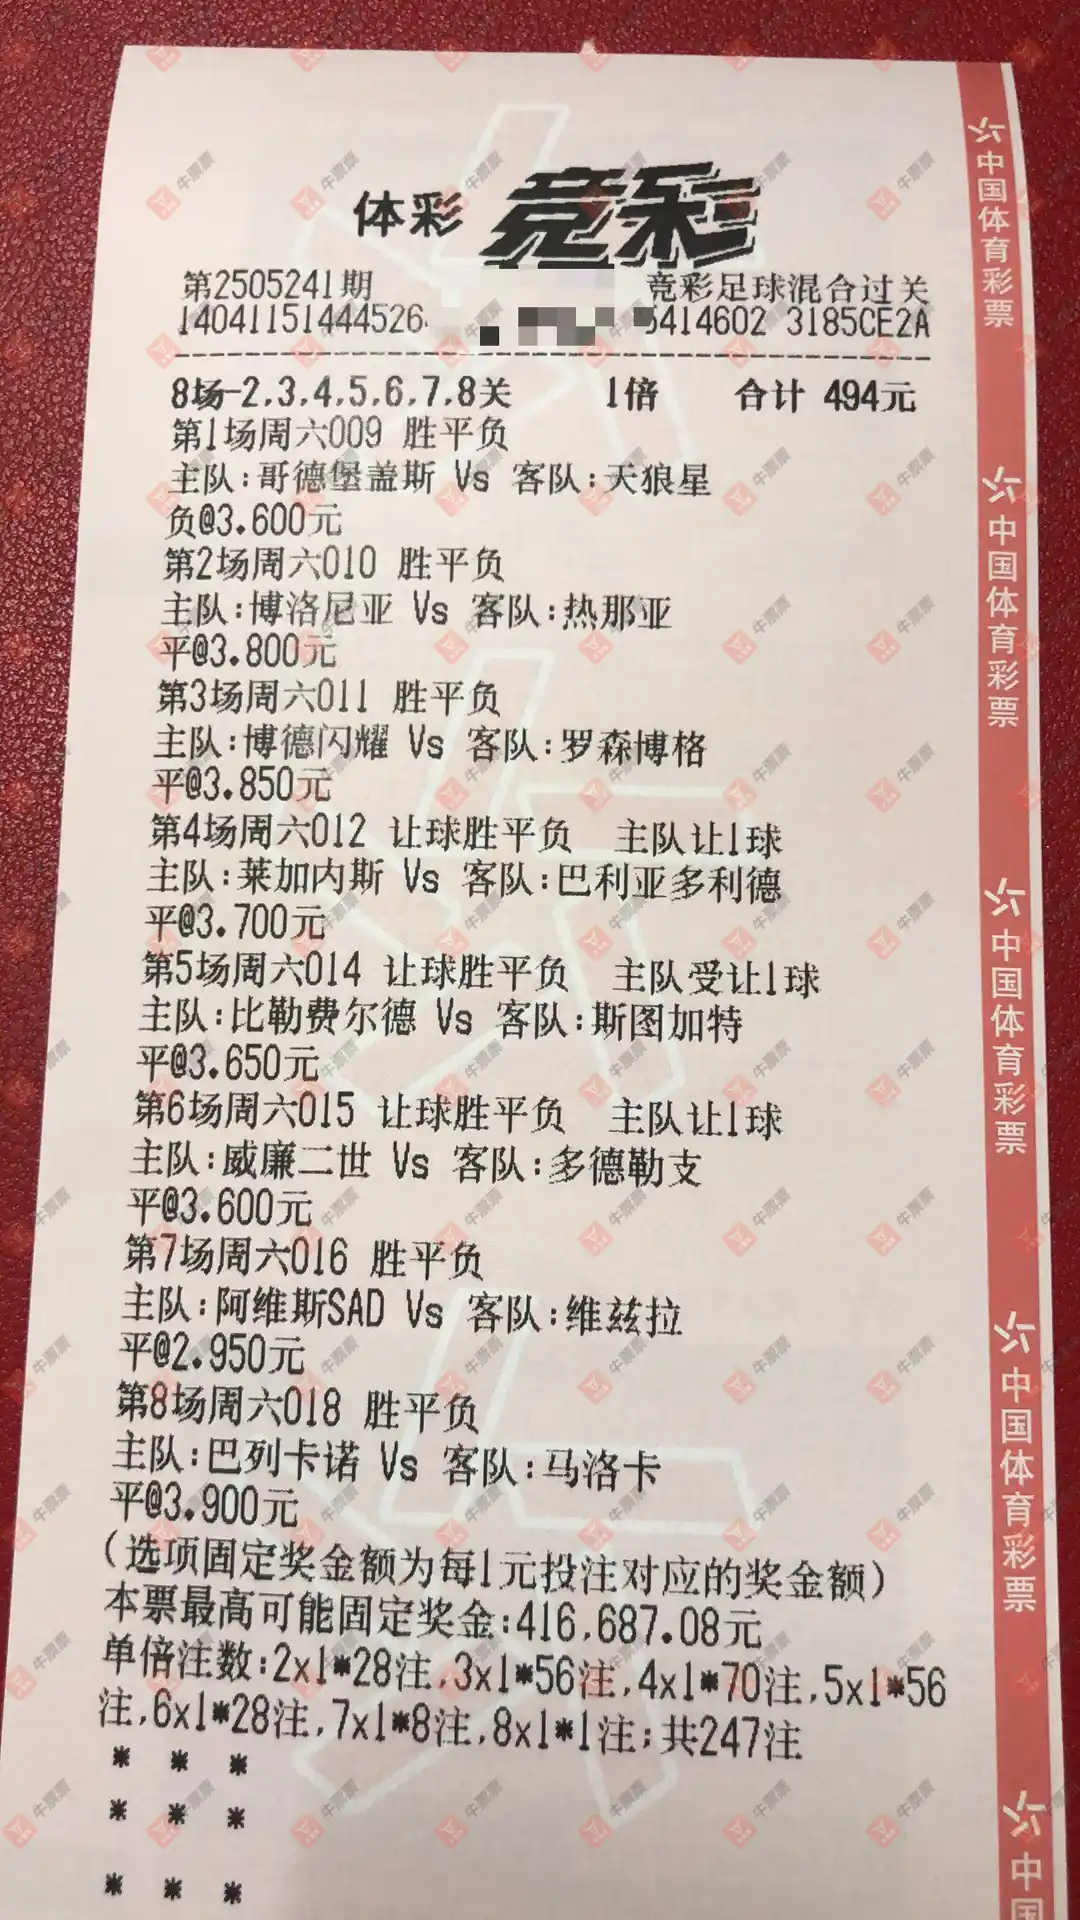 体彩 竞彩
第2505241期 竞彩足球混合过关
14041151444526 5414602 3185CE2A
8场-2,3,4,5,6,7,8关 1倍 合计 494元
第1场周六009 胜平负
主队:哥德堡盖斯 Vs 客队:天狼星
负@3.600元
第2场周六010 胜平负
主队:博洛尼亚 Vs 客队:热那亚
平@3.800元
第3场周六011 胜平负
主队:博德闪耀 Vs 客队:罗森博格
平@3.850元
第4场周六012 让球胜平负 主队让1球
主队:莱加内斯 Vs 客队:巴利亚多利德
平@3.700元
第5场周六014 让球胜平负 主队受让1球
主队:比勒费尔德 Vs 客队:斯图加特
平@3.650元
第6场周六015 让球胜平负 主队让1球
主队:威廉二世 Vs 客队:多德勒支
平@3.600元
第7场周六016 胜平负
主队:阿维斯SAD Vs 客队:维兹拉
平@2.950元
第8场周六018 胜平负
主队:巴列卡诺 Vs 客队:马洛卡
平@3.900元
(选项固定奖金额为每1元投注对应的奖金额)
本票最高可能固定奖金:416,687.08元
单倍注数:2x1*28注,3x1*56注,4x1*70注,5x1*56
注,6x1*28注,7x1*8注,8x1*1注;共247注
* * *
* * *
* * *
中国体育彩票
中国体育彩票
中国体育彩票
中国体育彩票
中国
牛票票